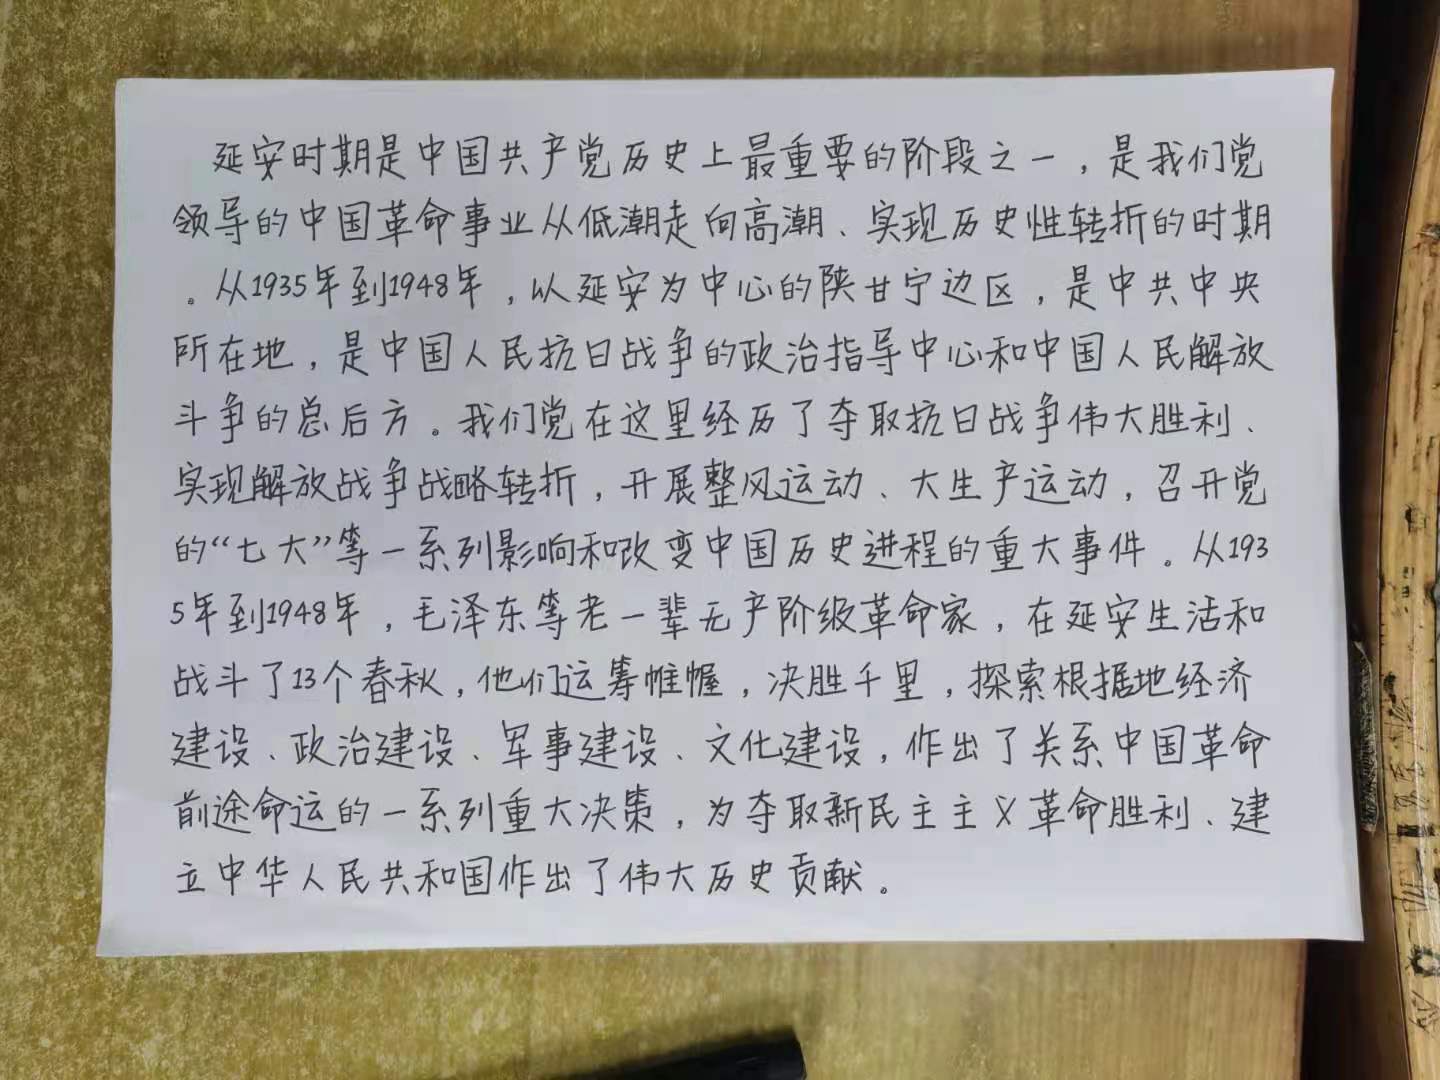 延安时期是中国共产党历史上最重要的阶段之一，是我们党
领导的中国革命事业从低潮走向高潮、实现历史性转折的时期
。从1935年到1948年，以延安为中心的陕甘宁边区，是中共中央
所在地，是中国人民抗日战争的政治指导中心和中国人民解放
斗争的总后方。我们党在这里经历了夺取抗日战争伟大胜利、
实现解放战争战略转折，开展整风运动、大生产运动，召开党
的“七大”等一系列影响和改变中国历史进程的重大事件。从193
5年到1948年，毛泽东等老一辈无产阶级革命家，在延安生活和
战斗了13个春秋，他们运筹帷幄，决胜千里，探索根据地经济
建设、政治建设、军事建设、文化建设，作出了关系中国革命
前途命运的一系列重大决策，为夺取新民主主义革命胜利、建
立中华人民共和国作出了伟大历史贡献。